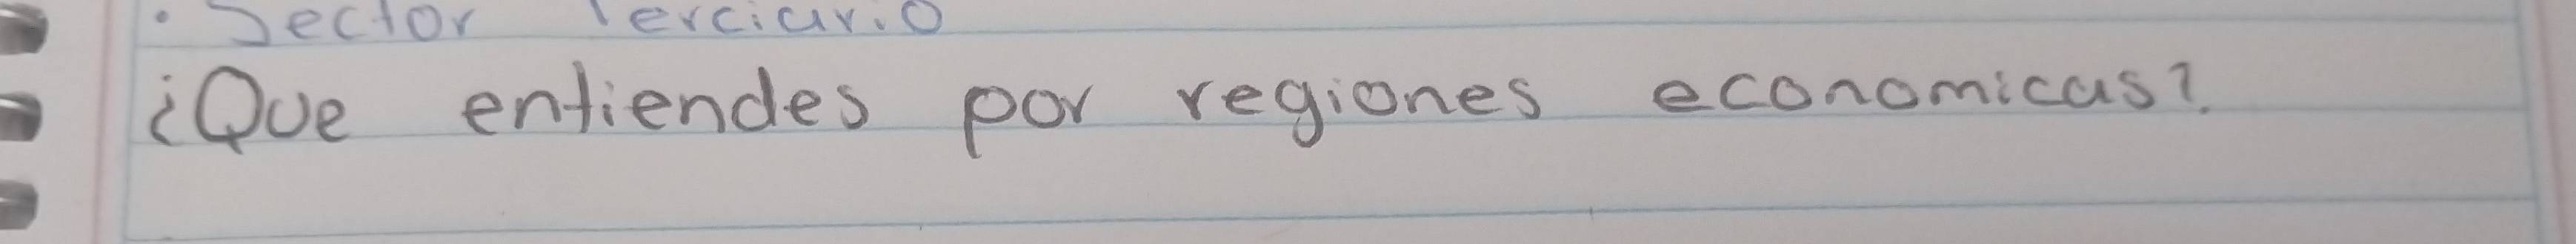 · Sector Terciario
¿Que entiendes por regiones economicas?